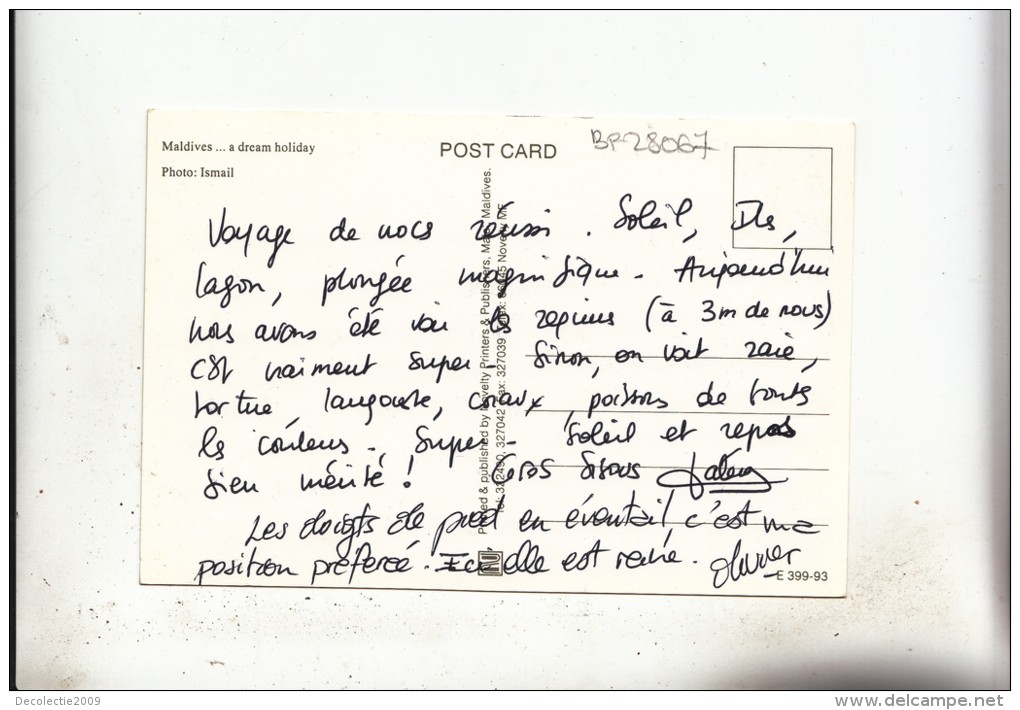 Maldives ... a dream holiday
Photo: Ismail
POST CARD
BP28067
Voyage de nocs réussi. Soleil, Iles,
lagon, plongée magnifique. Aujourd'hui
nous avons été voir les requins (à 3m de nous)
c'est vraiment super. Sinon, on voit raie,
tortue, langouste, coraux, poissons de touts
les couleurs. Super. Soleil et repos
bien mérité ! Gros bisous
Les doigts de pied en éventail c'est ma
position préférée. elle est reine. Olivier
Printed & published by Novelty Printers & Publishers, Male, Maldives.
Tel: 322490, 327042 Fax: 327039 Telex: 66045 Novelty MF
E 399-93
Decolectie2009
BPOSTCARDS.delcampe.net